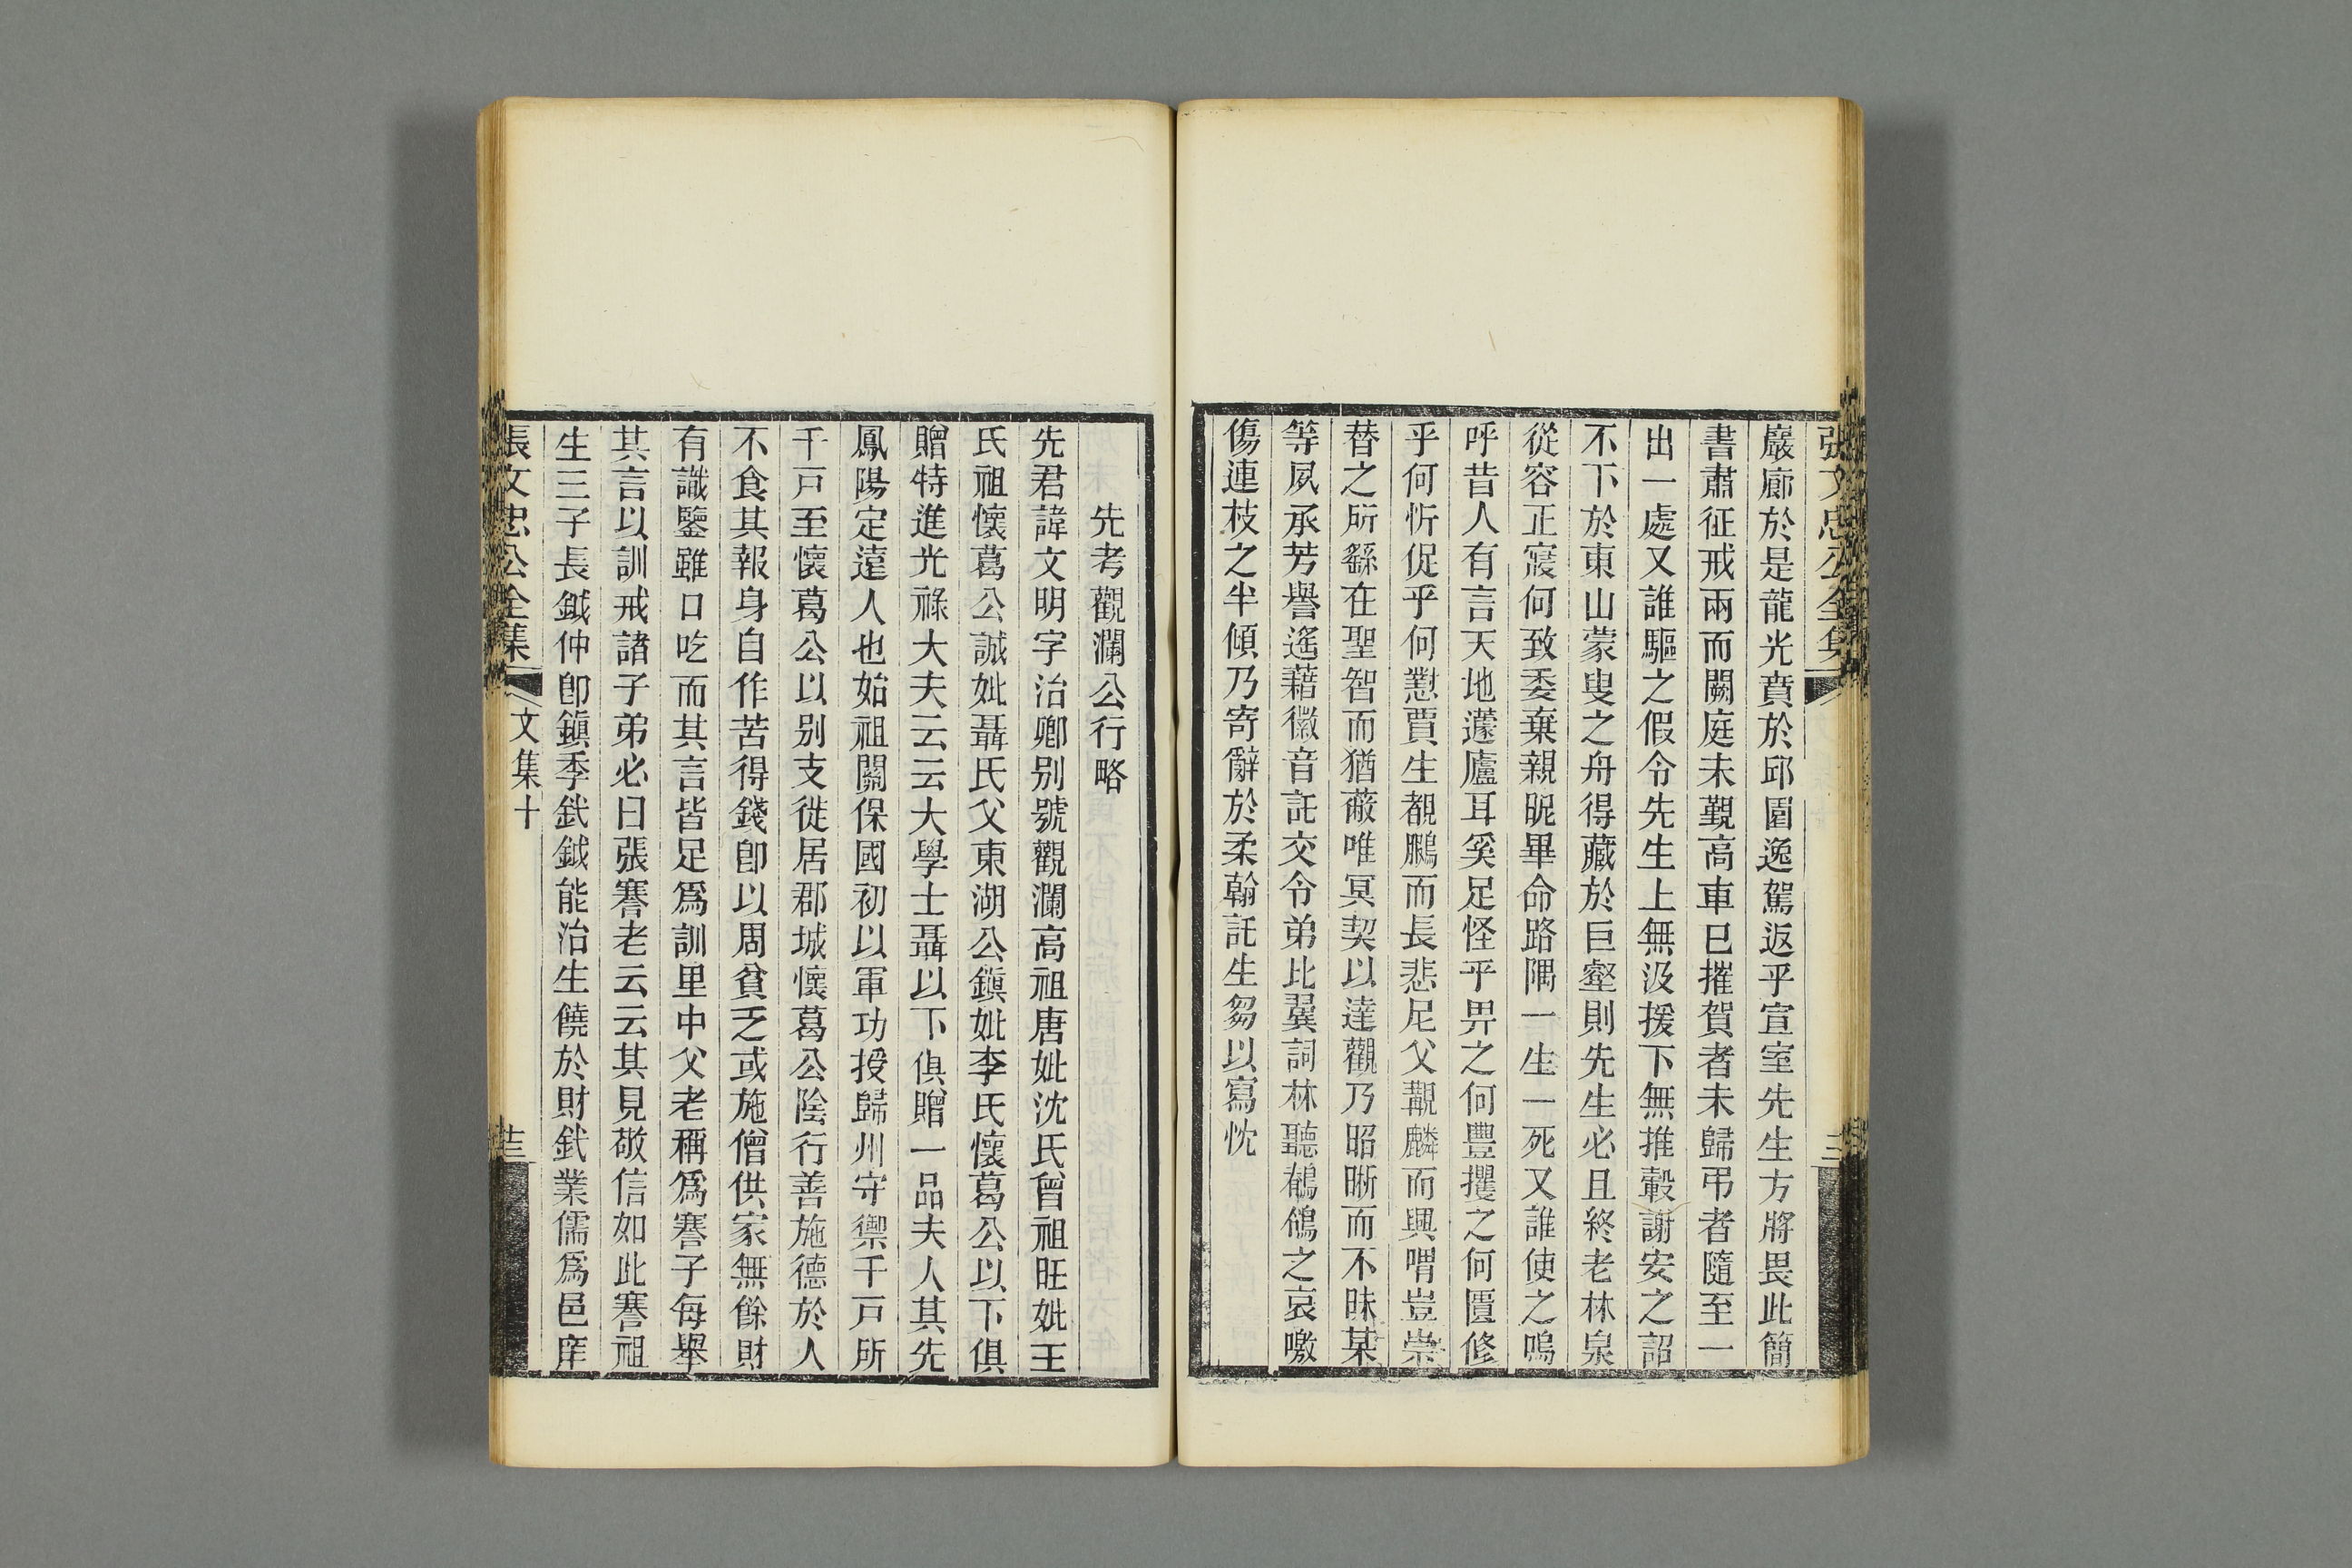 張文忠公全集
巖廊於是龍光賁於邱園逸駕返乎宣室先生方將畏此簡
書肅征戒兩而闕庭未覲高車已摧賀者未歸弔者隨至一
出一處又誰驅之假令先生上無汲援下無推轂謝安之詔
不下於東山蒙叟之舟得藏於巨壑則先生必且終老林泉
從容正寢何致委棄親昵畢命路隅一生一死又誰使之嗚
呼昔人有言天地蘧廬耳奚足怪乎畀之何豐攫之何匱修
乎何忻促乎何懟賈生覩鵩而長悲尼父覯麟而興喟豈崇
替之所繇在聖智而猶蔽唯冥契以達觀乃昭晰而不昧某
等夙承芳譽遙藉徽音託交令弟比翼詞林聽鶺鴒之哀噭
傷連枝之半傾乃寄辭於柔翰託生芻以寫忱
先考觀瀾公行略
先君諱文明字治卿别號觀瀾高祖唐妣沈氏曾祖旺妣王
氏祖懷葛公誠妣聶氏父東湖公鎮妣李氏懷葛公以下俱
贈特進光祿大夫云云大學士聶以下俱贈一品夫人其先
鳳陽定遠人也始祖關保國初以軍功授歸州守禦千戸所
千戸至懷葛公以别支徙居郡城懷葛公陰行善施德於人
不食其報身自作苦得錢卽以周貧乏或施僧供家無餘財
有識鑒雖口吃而其言皆足爲訓里中父老稱爲謇子每舉
其言以訓戒諸子弟必曰張謇老云云其見敬信如此謇祖
生三子長鉞仲卽鎭季釴鉞能治生饒於財釴業儒爲邑庠
張文忠公全集
文集十